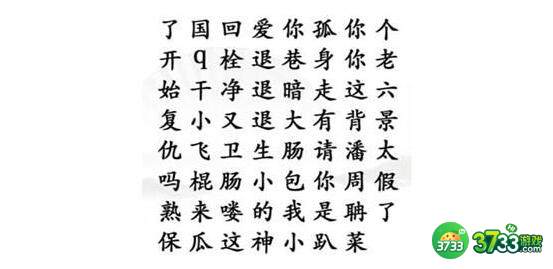 了国回爱你孤你个
开q栓退巷身你老
始干净退暗走这六
复小又退大有背景
仇飞卫生肠请潘太
吗棍肠小包你周假
熟来喽的我是聃了
保瓜这神小趴菜
3733
3733游戏.com